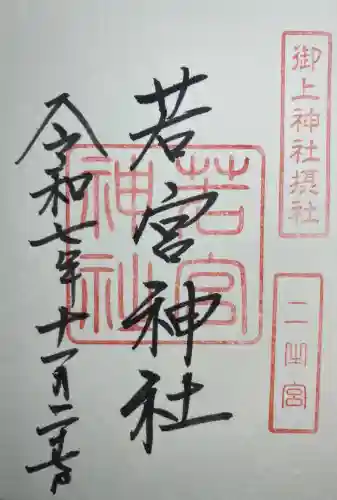 御上神社摂社
二之宮
若宮神社
若宮神社
令和七年十一月二十七日